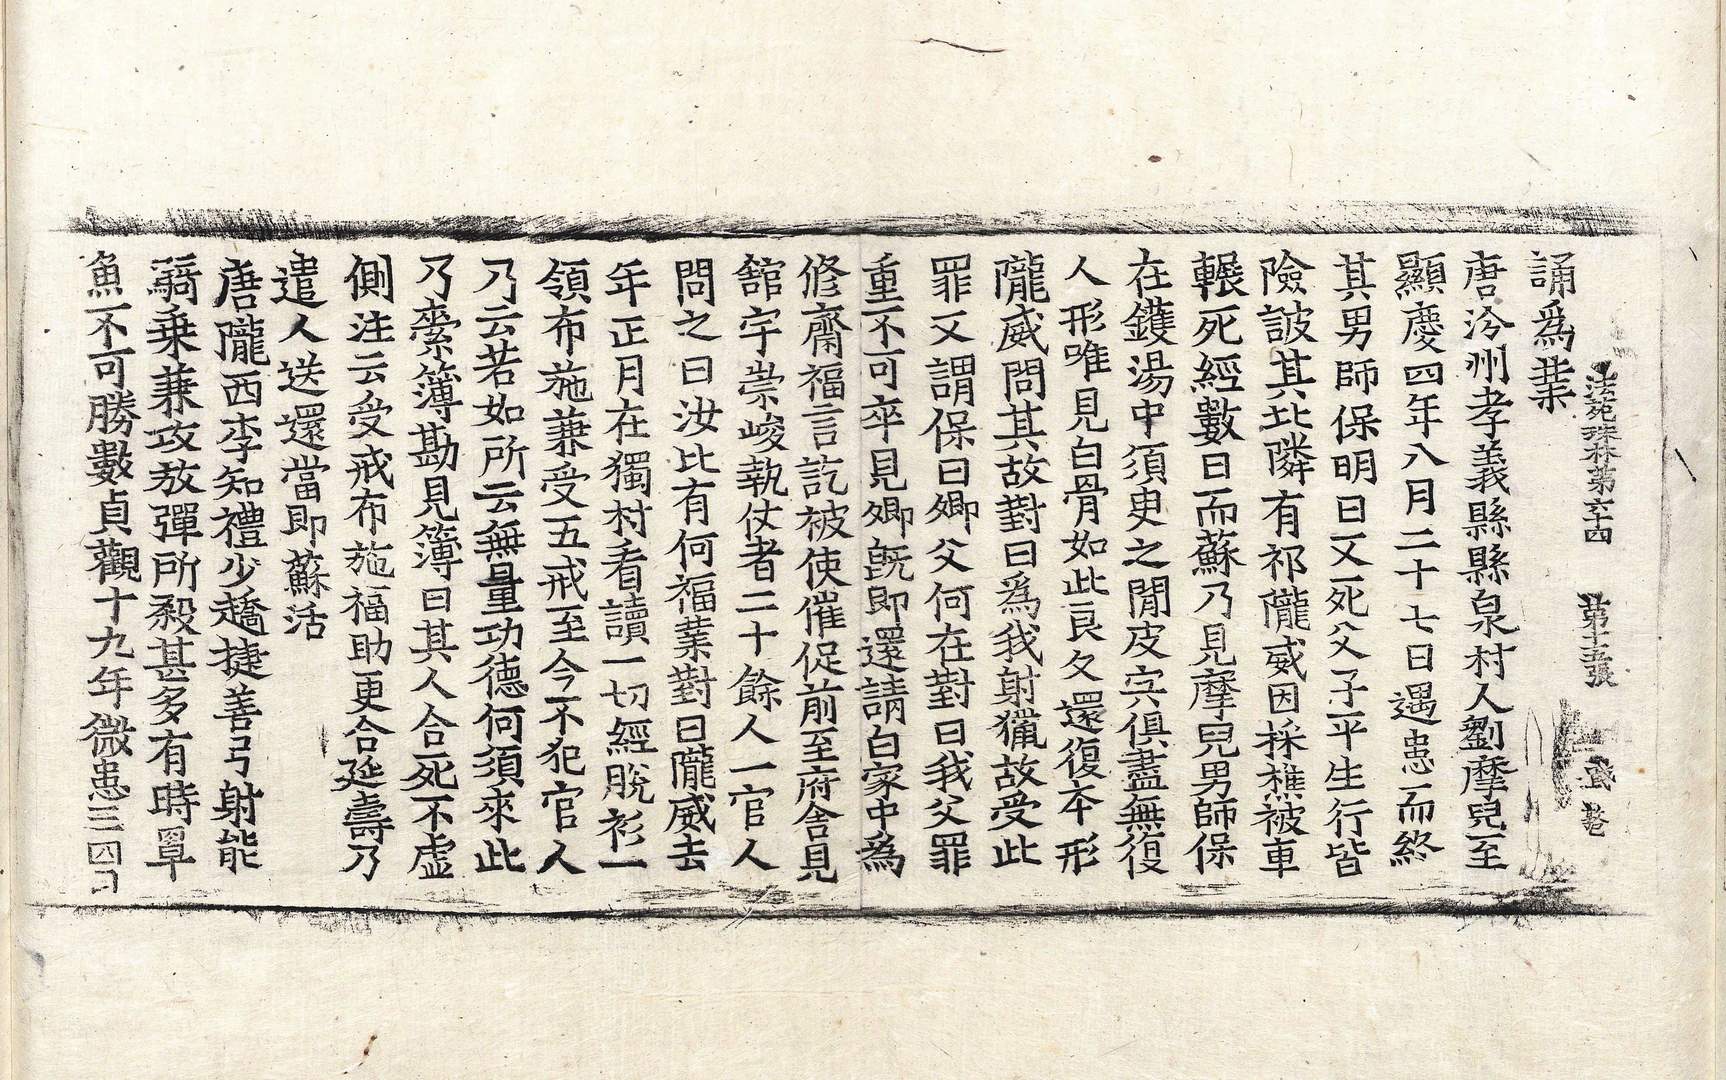 法苑珠林第六十四 第十五張
誦爲業
唐汾州孝義縣縣泉村人劉摩兒至
顯慶四年八月二十七日遇患而終
其男師保明日又死父子平生行皆
險詖其北隣有祁隴威因採樵被車
輾死經數日而蘇乃見摩兒男師保
在鑊湯中須臾之閒皮宍俱盡無復
人形唯見白骨如此良久還復本形
隴威問其故對曰爲我射獵故受此
罪又謂保曰卿父何在對曰我父罪
重不可卒見卿旣即還請白家中爲
修齋福言訖被使催促前至府舍見
舘宇崇峻執仗者二十餘人一官人
問之曰汝比有何福業對曰隴威去
年正月在獨村看讀一切經脫衫一
領布施兼受五戒至今不犯官人
乃云若如所云無量功德何須來此
乃索簿勘見簿曰其人合死不虛
側注云受戒布施福助更合延壽乃
遣人送還當即蘇活
唐隴西李知禮少趫捷善弓射能
騎乗兼攻放彈所殺甚多有時罩
魚不可勝數貞觀十九年微患三四日